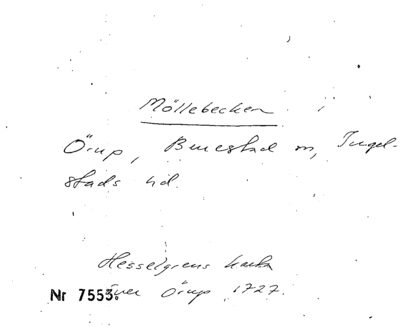 Möllebecken
Örup, Benestad sn, Ingel-
stads hd.
Hesselgrens karta
Nr 7553. över Örup 1727.